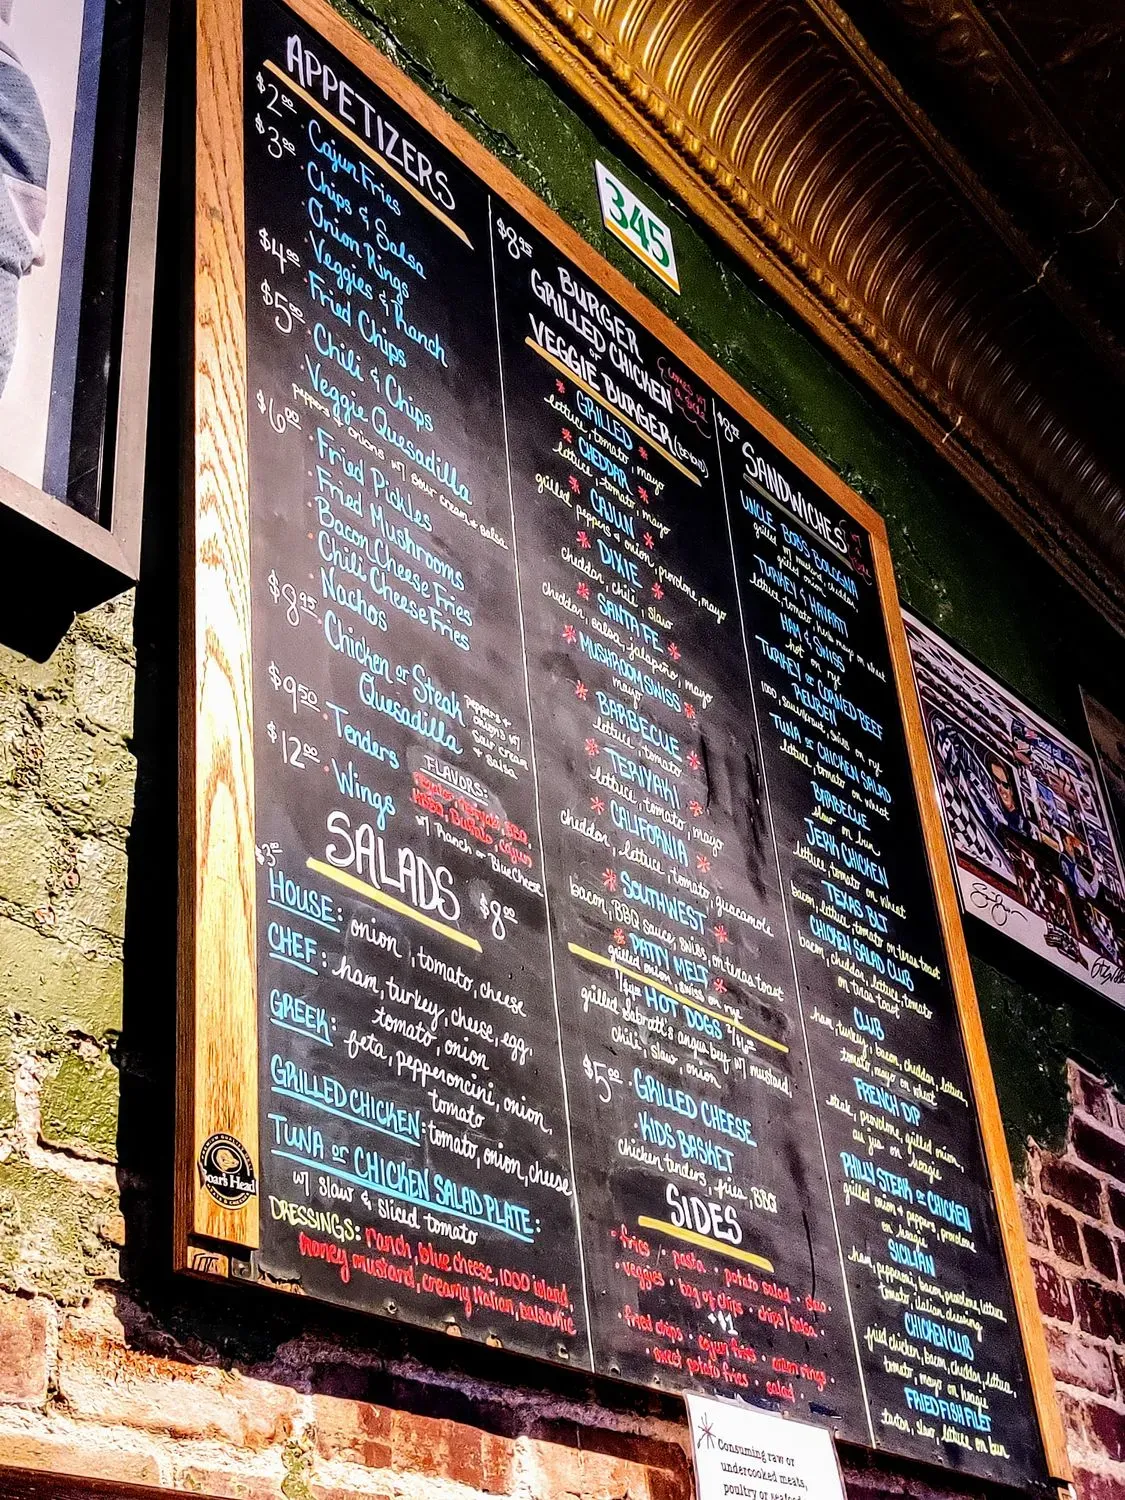 APPETIZERS
$2.00 · Cajun Fries
$3.00 · Chips & Salsa
· Onion Rings
· Veggies & Ranch
$4.00 · Fried Chips
$5.00 · Chili & Chips
· Veggie Quesadilla
peppers & onions w/ sour cream & salsa
$6.00 · Fried Pickles
· Fried Mushrooms
· Bacon Cheese Fries
· Chili Cheese Fries
· Nachos
$8.95 · Chicken or Steak
Quesadilla
peppers +
onions w/
sour cream
& salsa
$9.50 · Tenders
$12.00 · Wings
FLAVORS:
BBQ
Buffalo, Cajun
w/ Ranch or Blue Cheese
SALADS
$8.00
HOUSE: onion, tomato, cheese
CHEF: ham, turkey, cheese, egg,
tomato, onion
GREEK: feta, pepperoncini, onion,
tomato
GRILLED CHICKEN: tomato, onion, cheese
TUNA or CHICKEN SALAD PLATE:
w/ slaw & sliced tomato
DRESSINGS: ranch, blue cheese, 1000 island,
honey mustard, creamy italian, balsamic
Boar's Head
345
$8.95 BURGER
GRILLED CHICKEN
or
VEGGIE BURGER (BEYOND)
comes w/
a side
* GRILLED *
lettuce, tomato, mayo
* CHEDDAR *
lettuce, tomato, mayo
* CAJUN *
grilled peppers & onion, provolone, mayo
* DIXIE *
cheddar, chili, slaw
* SANTA FE *
cheddar, salsa, jalapeño, mayo
* MUSHROOM SWISS *
mayo
* BARBECUE *
lettuce, tomato
* TERIYAKI *
lettuce, tomato, mayo
* CALIFORNIA *
cheddar, lettuce, tomato, guacamole
* SOUTHWEST *
bacon, BBQ sauce, swiss, on texas toast
* PATTY MELT *
grilled onion, swiss on rye
HOT DOGS
grilled Sabrett's angus beef w/ mustard,
chili, slaw, onion
$5.00 · GRILLED CHEESE
· KIDS BASKET
chicken tenders, fries, BBQ
SIDES
· fries · pasta · potato salad · slaw ·
· veggies · bag of chips · chips/salsa ·
+$1
· fried chips · cajun fries · onion rings ·
· sweet potato fries · salad ·
SANDWICHES
UNCLE BOB'S BOLOGNA
grilled w/ mustard, cheddar,
grilled onion
TURKEY & HAVARTI
lettuce, tomato, herb mayo on wheat
HAM & SWISS
hot on rye
TURKEY or CORNED BEEF
REUBEN
1000, sauerkraut, swiss on rye
TUNA or CHICKEN SALAD
lettuce, tomato on wheat
BARBECUE
slaw on bun
JERK CHICKEN
lettuce, tomato on wheat
TEXAS BLT
bacon, lettuce, tomato on texas toast
CHICKEN SALAD CLUB
bacon, cheddar, lettuce, tomato
on texas toast
CLUB
ham, turkey, bacon, cheddar, lettuce,
tomato, mayo on wheat
FRENCH DIP
steak, provolone, grilled onion,
au jus on hoagie
PHILLY STEAK or CHICKEN
grilled onion & peppers, provolone
on hoagie
SICILIAN
ham, pepperoni, bacon, provolone, lettuce,
tomato, italian dressing
CHICKEN CLUB
fried chicken, bacon, cheddar, lettuce,
tomato, mayo on hoagie
FRIED FISH FILET
tartar, slaw, lettuce on bun
Consuming raw or
undercooked meats,
poultry or seafood